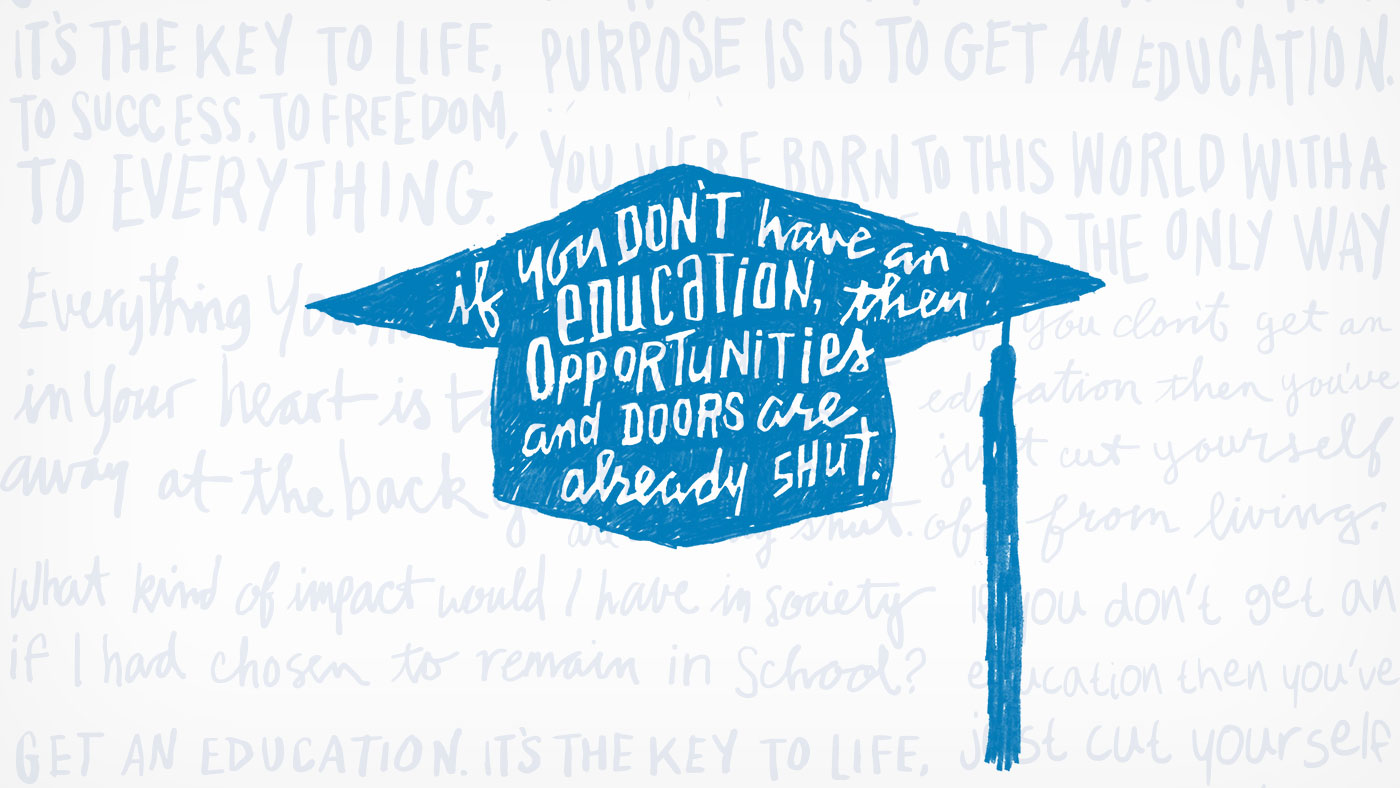 IT'S THE KEY TO LIFE,
TO SUCCESS. TO FREEDOM,
TO EVERYTHING.
PURPOSE IS IS TO GET AN EDUCATION.
YOU WERE BORN TO THIS WORLD WITH A
AND THE ONLY WAY
if you DON'T have an
education, then
Opportunities
and DOORS are
already SHUT.
Everything You
in your heart is
away at the back
you don't get an
education then you've
just cut yourself
off from living.
shut.
What kind of impact would I have in society
if I had chosen to remain in School?
If you don't get an
education then you've
just cut yourself
GET AN EDUCATION. IT'S THE KEY TO LIFE,